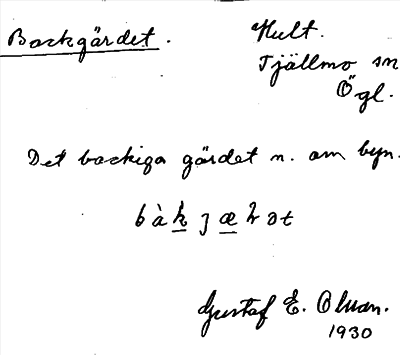 Backgärdet.
Hult.
Tjällmo sn
Ögl.
Det backiga gärdet n. om byn.
Gustaf E. Olsson.
1930